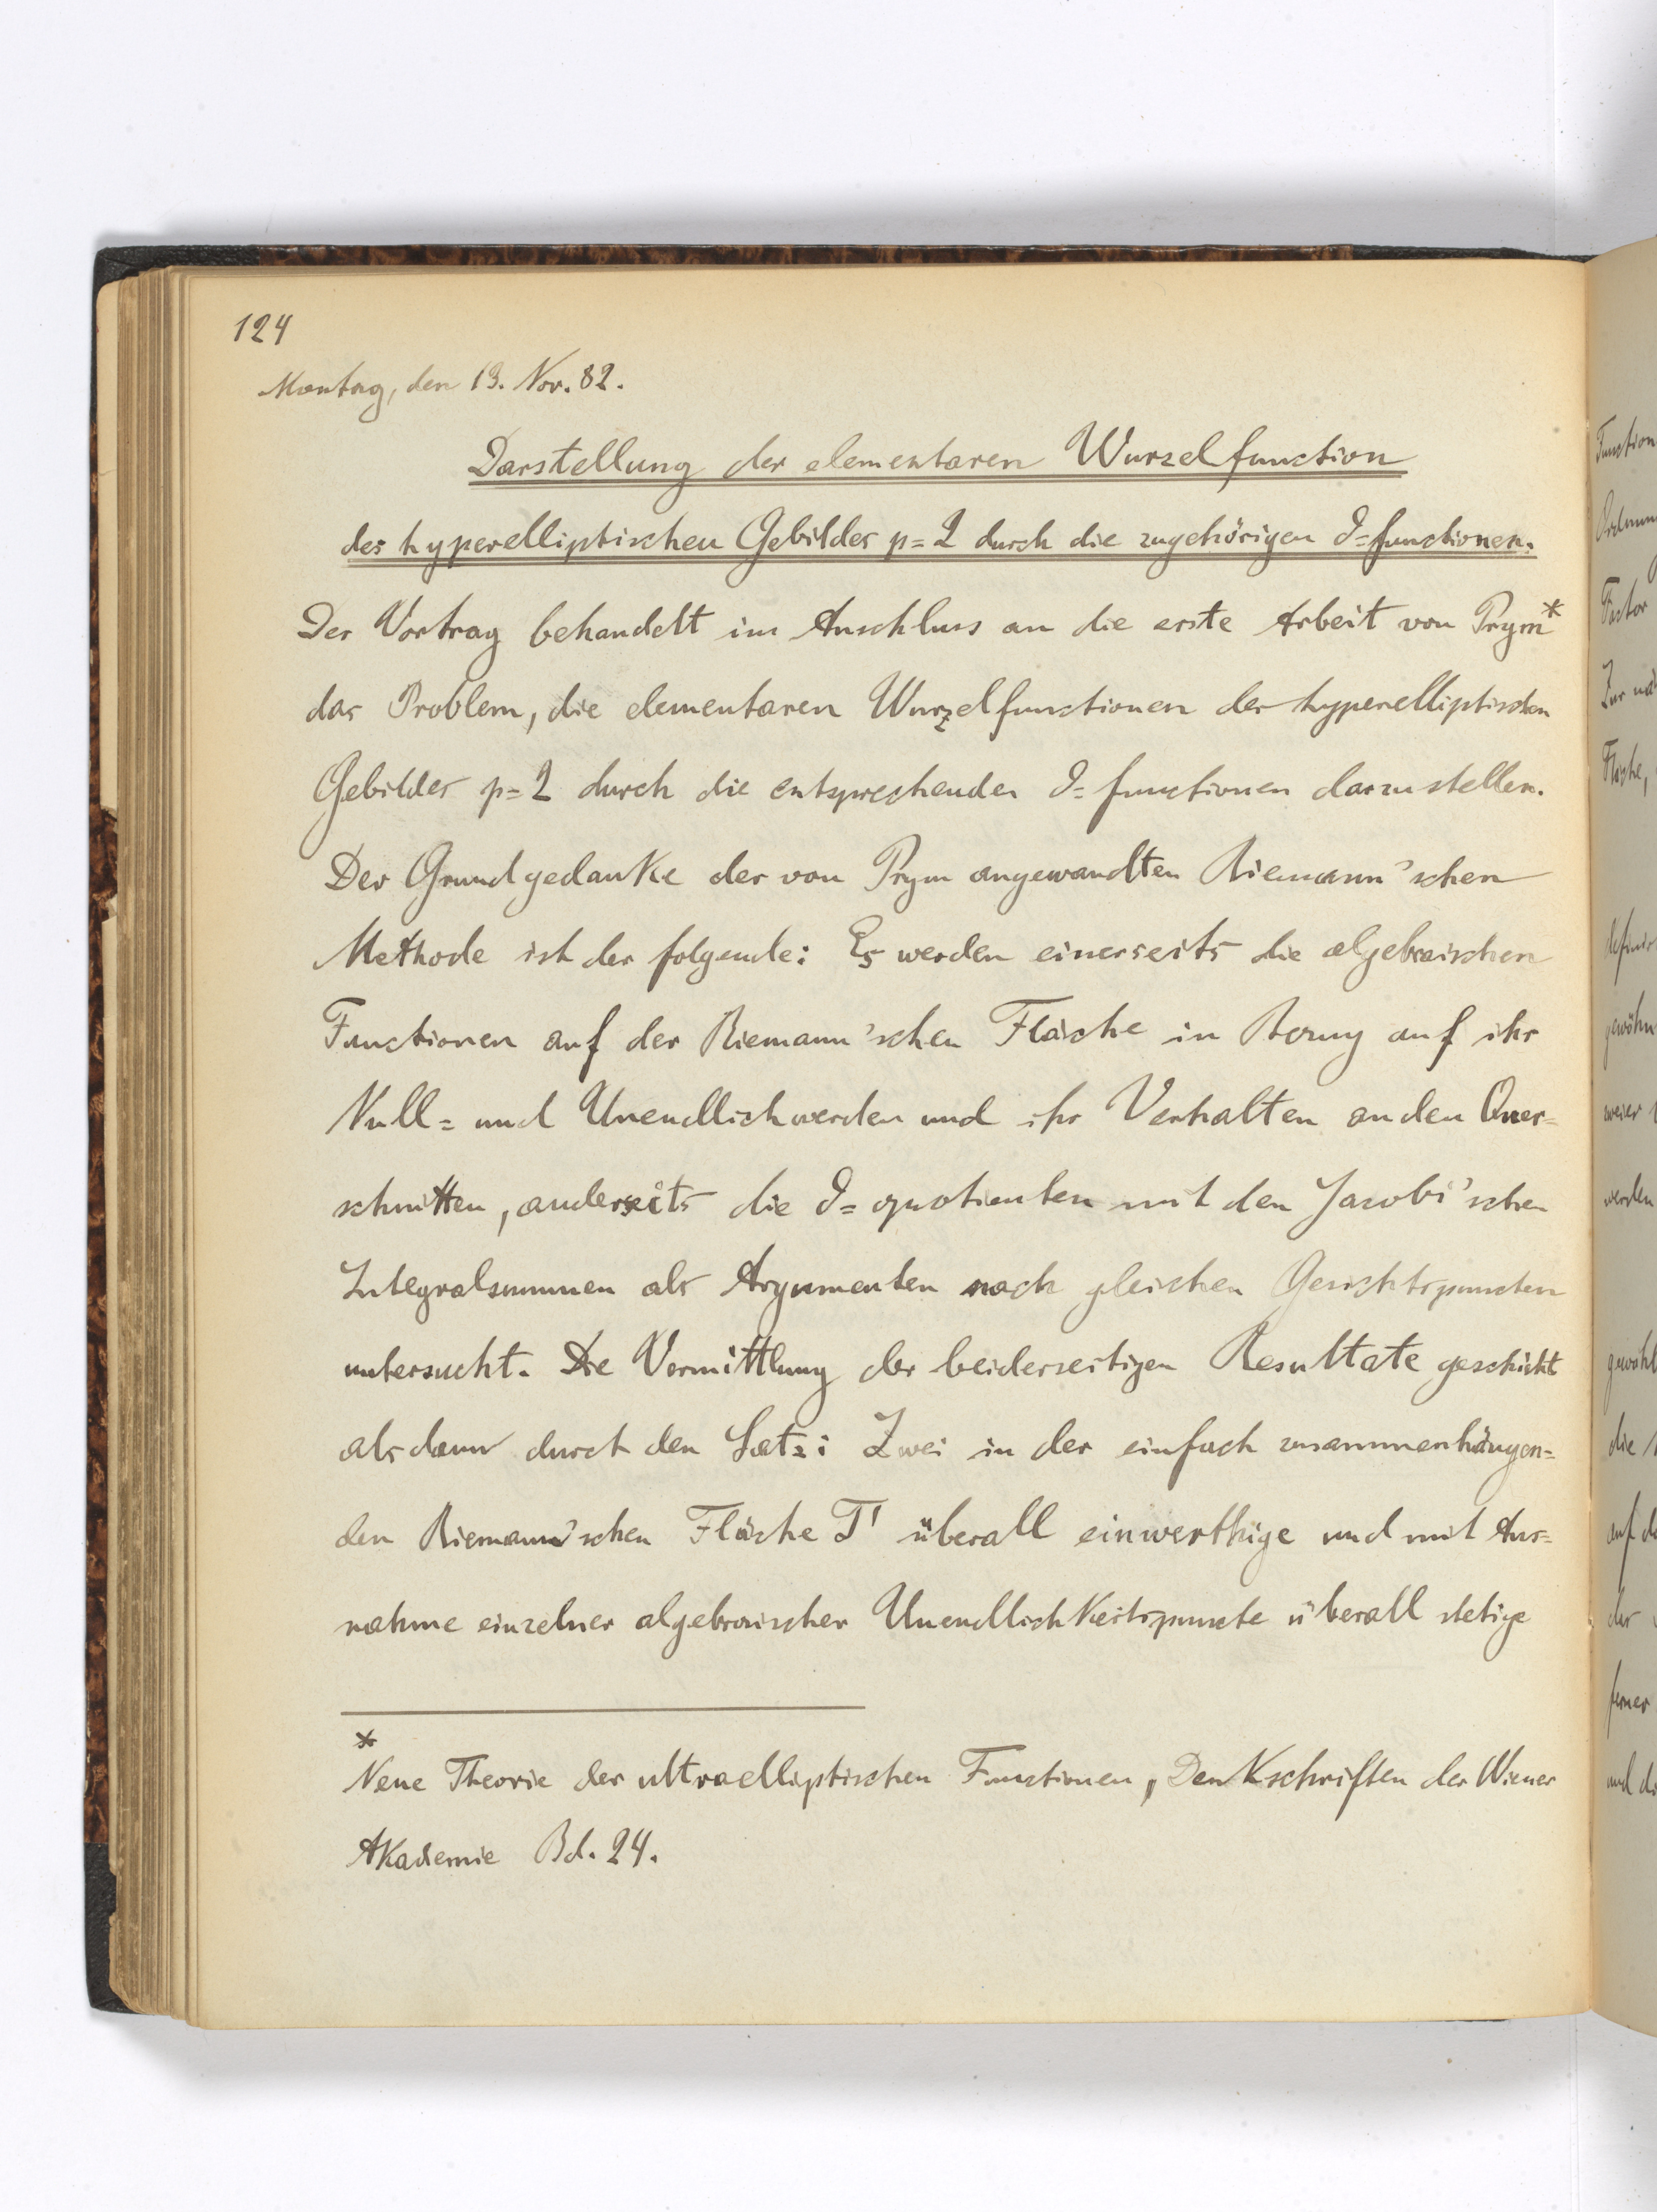 124
Montag, den 13. Nov. 82.
Darstellung der elementaren Wurzelfunction
des hyperelliptischen Gebildes p=2 durch die zugehörigen ϑ=functionen.
Der Vortrag behandelt im Anschluss an die erste Arbeit von Prym*
das Problem, die elementaren Wurzelfunctionen der hyperelliptischen
Gebildes p=2 durch die entsprechenden ϑ=functionen darzustellen.
Der Grundgedanke der von Prym angewandten Riemann'schen
Methode ist der folgende: Es werden einerseits die algebraischen
Functionen auf der Riemann'schen Fläche in Bezug auf ihr
Null= und Unendlichwerden und ihr Verhalten an den Quer=
schnitten, anderseits die ϑ=quotienten mit den Jacobi'schen
Integralsummen als Argumenten nach gleichen Gesichtspuncten
untersucht. Die Vermittlung der beiderseitigen Resultate geschieht
alsdann durch den Satz: Zwei in der einfach zusammenhängen=
den Riemann'schen Fläche T' überall einwerthige und mit Aus=
nahme einzelner algebraischer Unendlichkeitspuncte überall stetige
*
Neue Theorie der ultraelliptischen Functionen, Denkschriften der Wiener
Akademie Bd. 24.
Function
Factor
werden
die
ferner